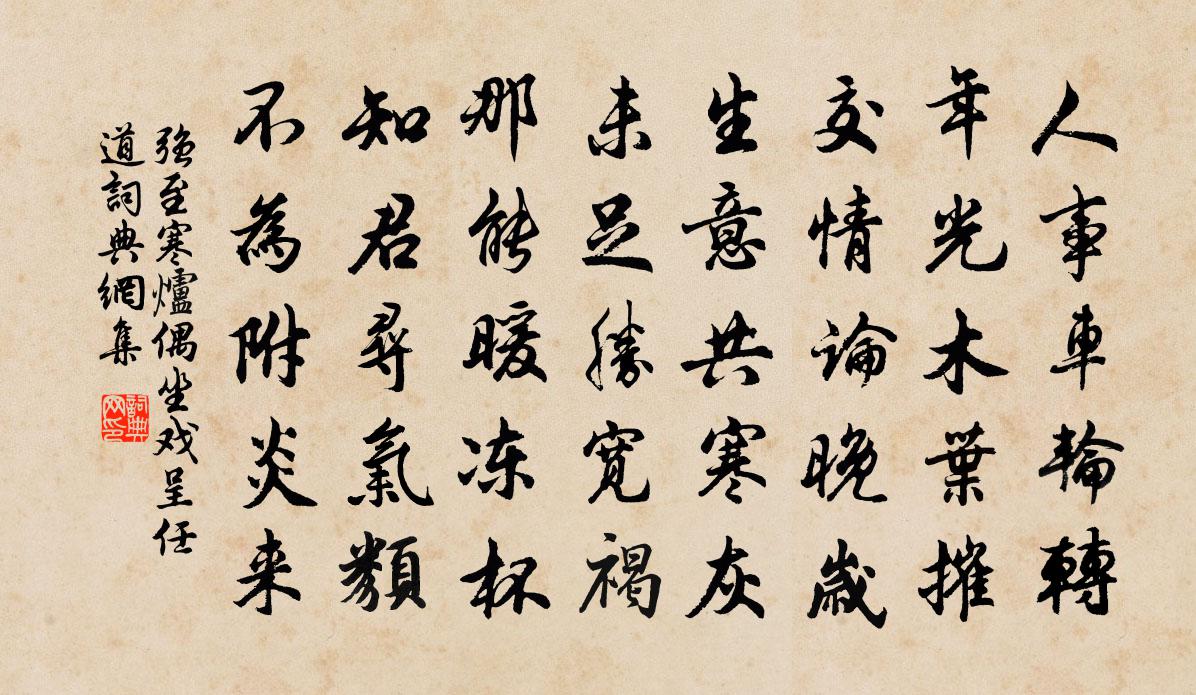 人事車輪轉
年光木葉摧
交情論晚歲
生意共寒灰
未足勝寬褐
那能暖凍杯
知君尋氣類
不為附炎来
強至寒爐偶坐戏呈任
道詞典網集
詞典
网印